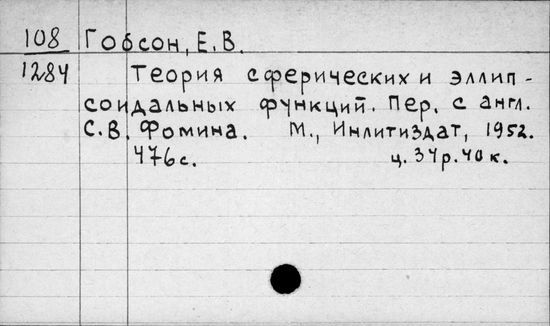 108 Гобсон, Е. В.
1284 Теория сферических и эллип-
соидальных функций. Пер. с англ.
С.В. Фомина. М., Инлитиздат, 1952.
476 с. ц. 34 р. 40 к.